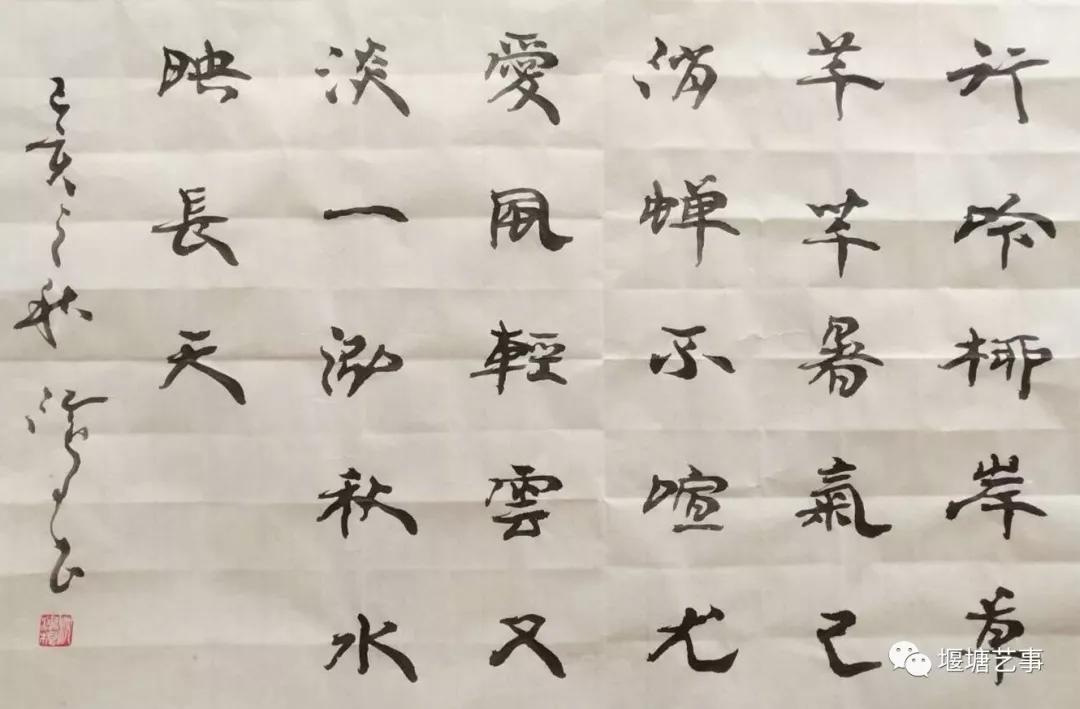 行吟柳岸草
芊芊暑氣已
消蟬不喧尤
愛風輕雲又
淡一泓秋水
映長天
己亥之秋
堰塘艺事